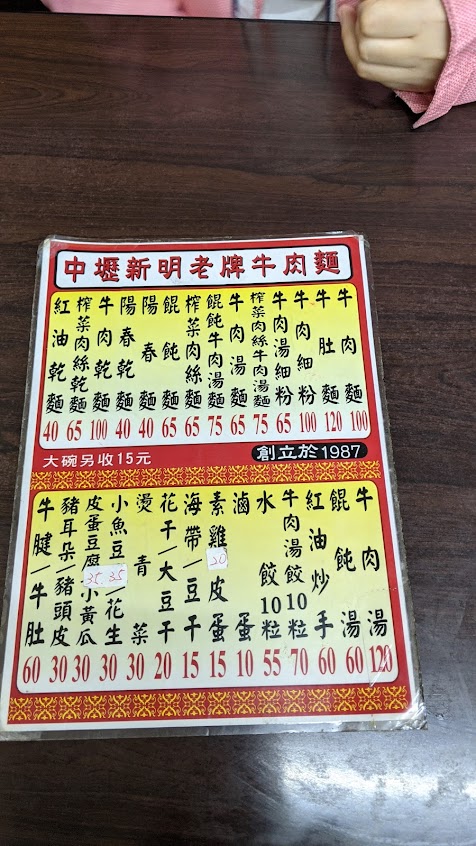 中壢新明老牌牛肉麵
牛肉麵 100
牛肚麵 120
牛肉細粉 100
牛肉湯細粉 65
榨菜肉絲牛肉湯麵 75
牛肉湯麵 65
餛飩牛肉湯麵 75
榨菜肉絲麵 65
餛飩麵 65
陽春麵 40
陽春乾麵 40
牛肉乾麵 100
榨菜肉絲乾麵 65
紅油乾麵 40
大碗另收15元
創立於1987
牛肉湯 120
餛飩湯 60
紅油炒手 60
牛肉湯餃10粒 70
水餃10粒 55
滷蛋 10
素雞/皮蛋 20 15
海帶/豆干 15
花干/大豆干 20
燙青菜 30
小魚豆/花生 35 30
皮蛋豆腐/小黃瓜 35 30
豬耳朵/豬頭皮 30
牛腱/牛肚 60